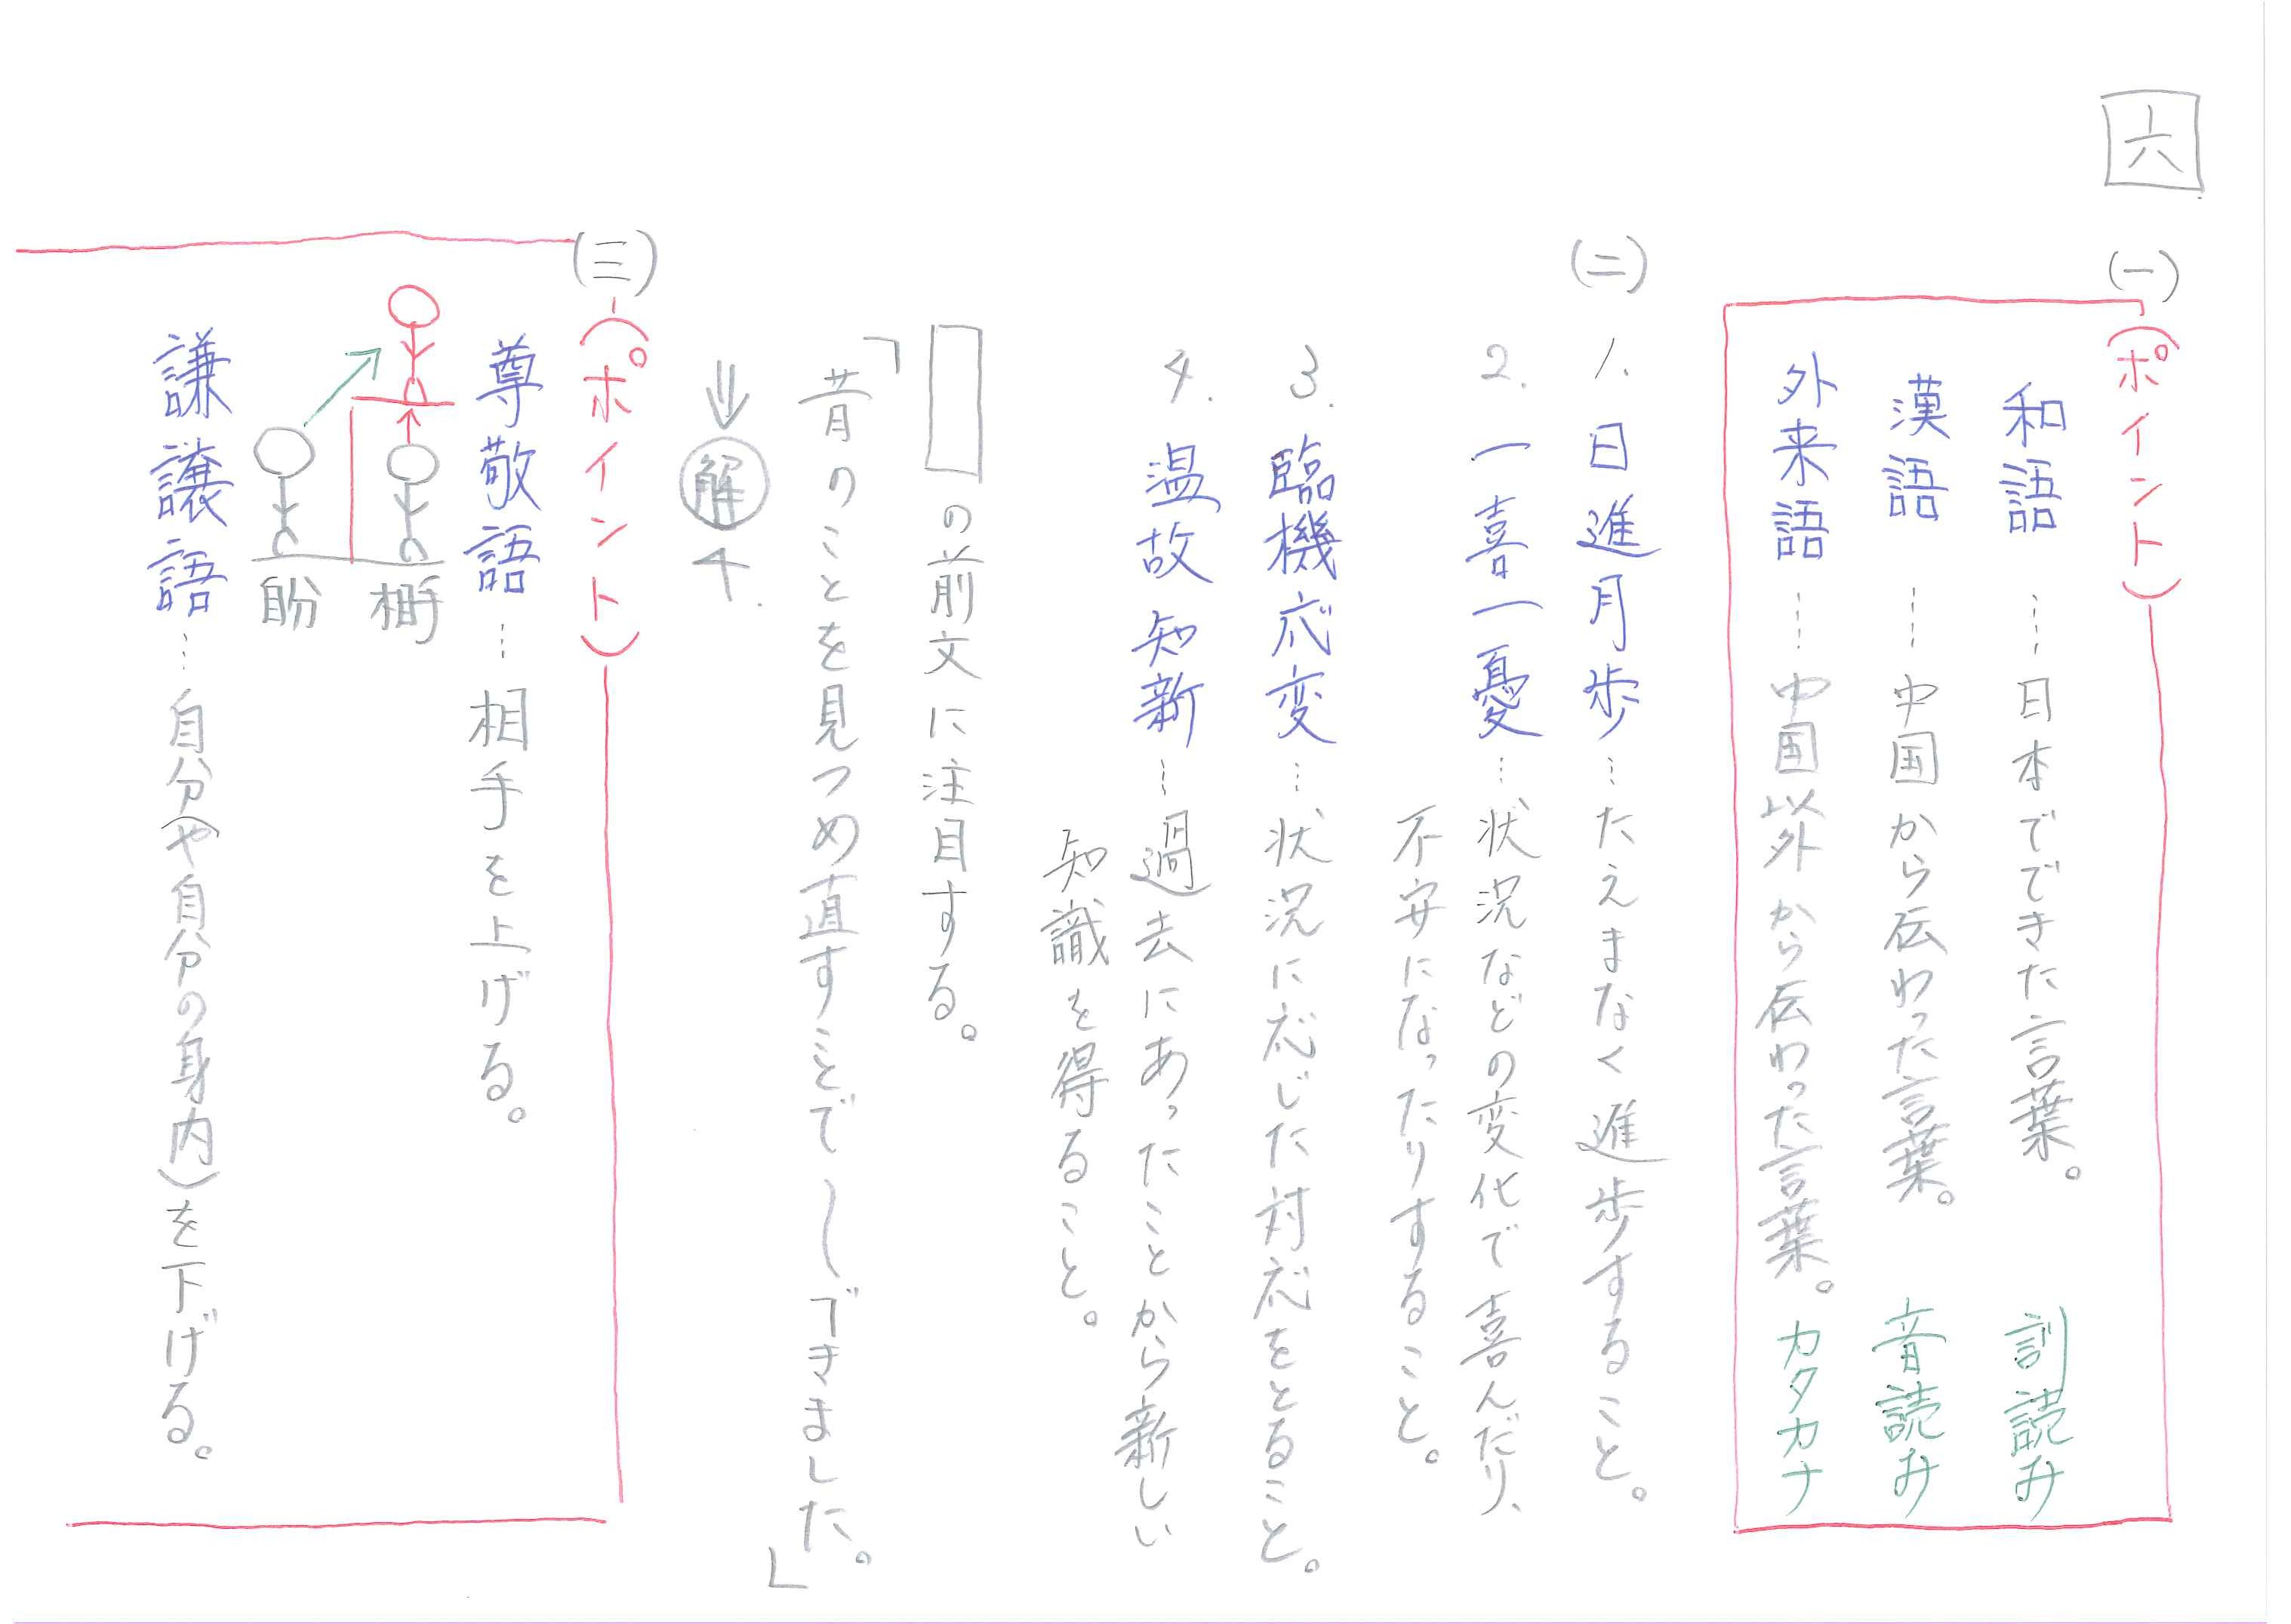 六
(一)
(ポイント)
和語……日本でできた言葉。 訓読み
漢語……中国から伝わった言葉。 音読み
外来語……中国以外から伝わった言葉。 カタカナ
(二)
1. 日進月歩…たえまなく進歩すること。
2. 一喜一憂…状況などの変化で喜んだり、
不安になったりすること。
3. 臨機応変…状況に応じた対応をとること。
4. 温故知新…過去にあったことから新しい
知識を得ること。
の前文に注目する。
「昔のことを見つめ直すことで〜できました。」
⇓解 4.
(三)
(ポイント)
尊敬語…相手を上げる。
相手
自分
謙譲語…自分(や自分の身内)を下げる。